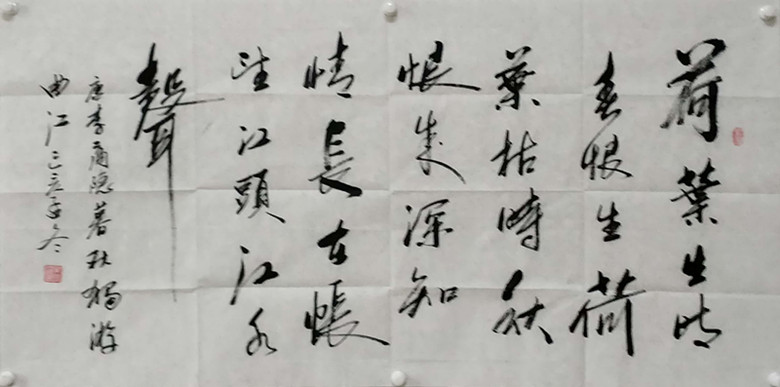 荷葉生时
春恨生荷
葉枯時秋
恨成深知
情長在悵
望江頭江水
聲
唐李商隐暮秋獨游
曲江 己亥年冬